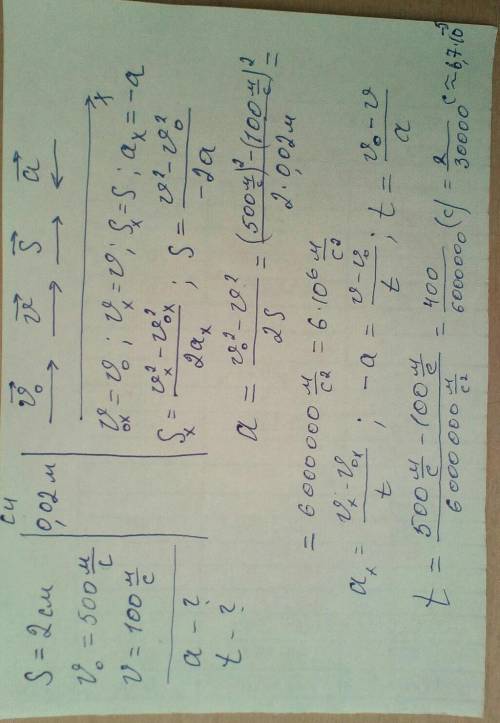 S = 2 см
𝑣₀ = 500 м/с
𝑣 = 100 м/с
a - ?
t - ?
СИ
0,02 м
𝑣⃗₀ 𝑣⃗ S⃗ a⃗
x
𝑣₀ₓ = 𝑣₀ ; 𝑣ₓ = 𝑣 ; Sₓ = S ; aₓ = -a
Sₓ = (𝑣ₓ² - 𝑣₀ₓ²) / 2aₓ ; S = (𝑣² - 𝑣₀²) / -2a
a = (𝑣₀² - 𝑣²) / 2S = ((500 м/с)² - (100 м/с)²) / 2·0,02м =
= 6000000 м/с² = 6·10⁶ м/с²
aₓ = (𝑣ₓ - 𝑣₀ₓ) / t ; -a = (𝑣 - 𝑣₀) / t ; t = (𝑣₀ - 𝑣) / a
t = (500 м/с - 100 м/с) / 6000000 м/с² = 400 / 6000000 (с) = 2 / 30000 с ≈ 6,7·10⁻⁵